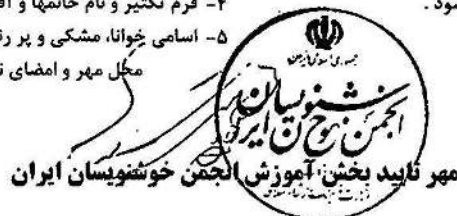 شود .
۴- فرم تکثیر و نام خانمها و آق
۵- اسامی خوانا، مشکی و پر ر
محل مهر و امضای ن
جمهوری اسلامی ایران
انجمن خوشنویسان ایران
مهر تایید بخش آموزش انجمن خوشنویسان ایران